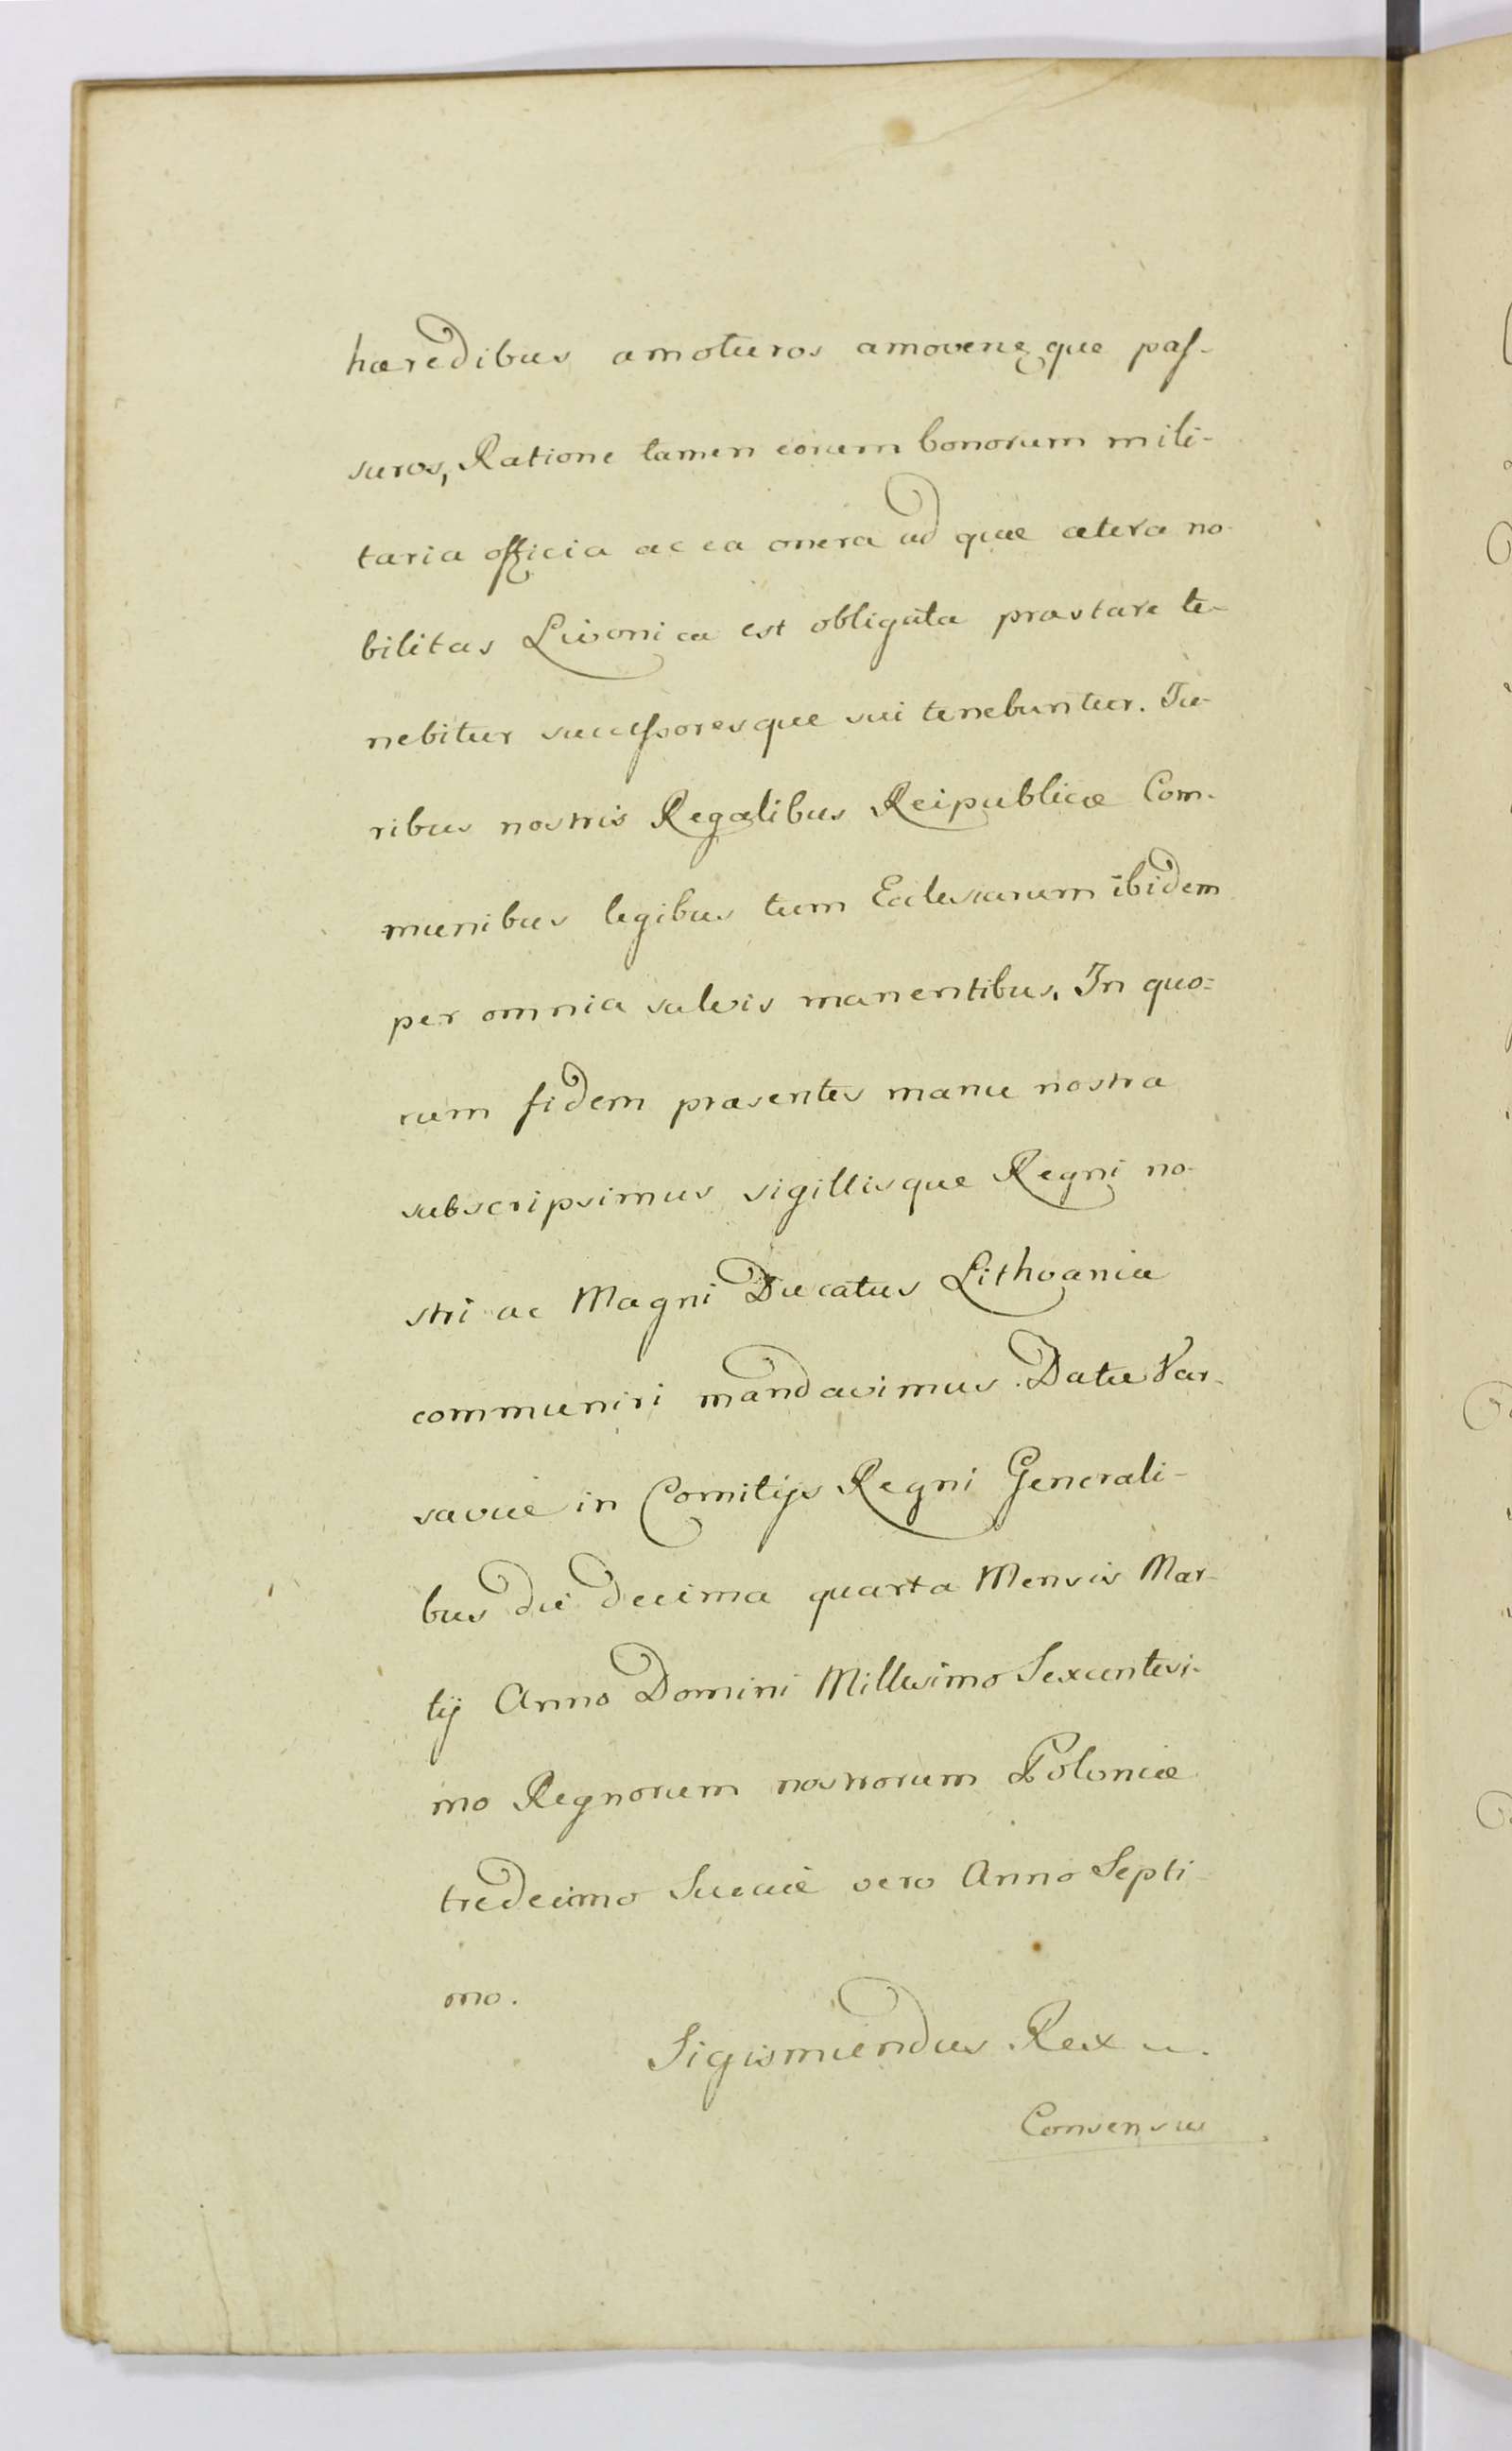 hæredibus amoturos amoveneque pas-
suros, Ratione tamen eorum bonorum mili-
taria officia ac ea onera ad quæ cætera no-
bilitas Livonica est obligata præstare te-
nebitur successoresque sui tenebuntur. Ju-
ribus nostris Regalibus Reipublicæ Com-
munibus legibus tum Eclesiarum ibidem
per omnia salvis manentibus. In quo=
rum fidem præsentes manu nostra
subscripsimus sigillisque Regni no-
stri ac Magni Ducatus Lithvaniæ
communiri mandavimus. Datæ Var-
saviæ in Comitijs Regni Generali-
bus die decima quarta Mensis Mar-
tij Anno Domini Millesimo Sexcentesi-
mo Regnorum nostrorum Poloniæ
tredecimo Sueciæ vero Anno Septi-
mo.
Sigismundus Rex
Consensus